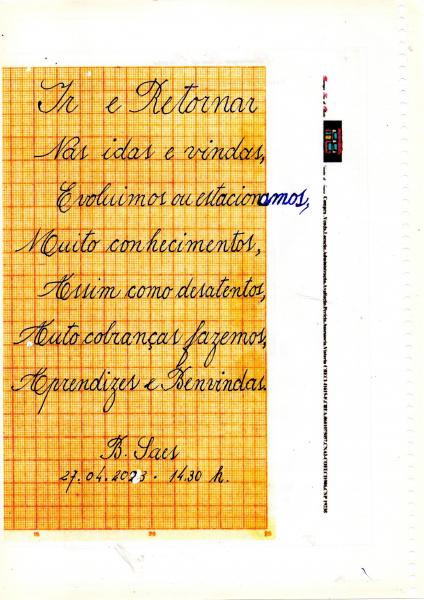 Ir e Retornar
Nas idas e vindas,
Evoluimos ou estacionamos,
Muito conhecimentos,
Assim como desatentos,
Auto cobranças fazemos,
Aprendizes e Benvindas.
B. Saes
27.04.2023 - 14.30 h.
15 20 25